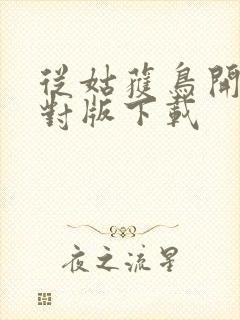 從姑獲鳥開
對版下載
夜之流星